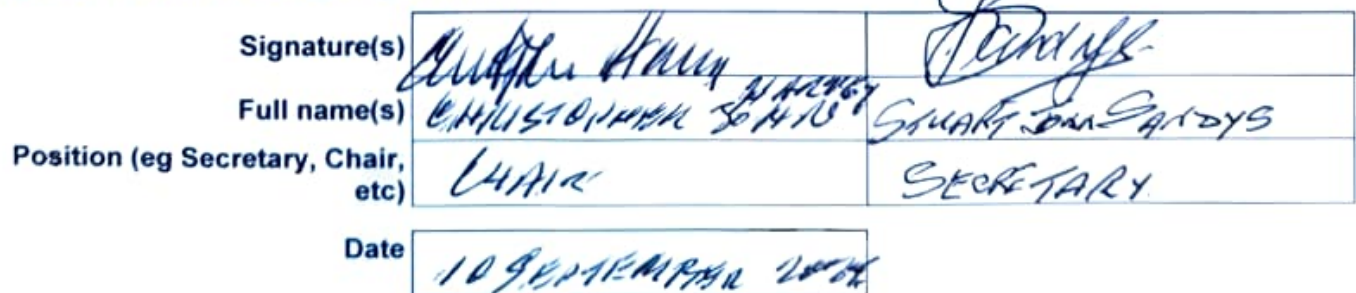 Signature(s)
Full name(s) CHRISTOPHER JOHN HARVEY STUART JOHN SANDYS
Position (eg Secretary, Chair, etc) CHAIR SECRETARY
Date 10 SEPTEMBER